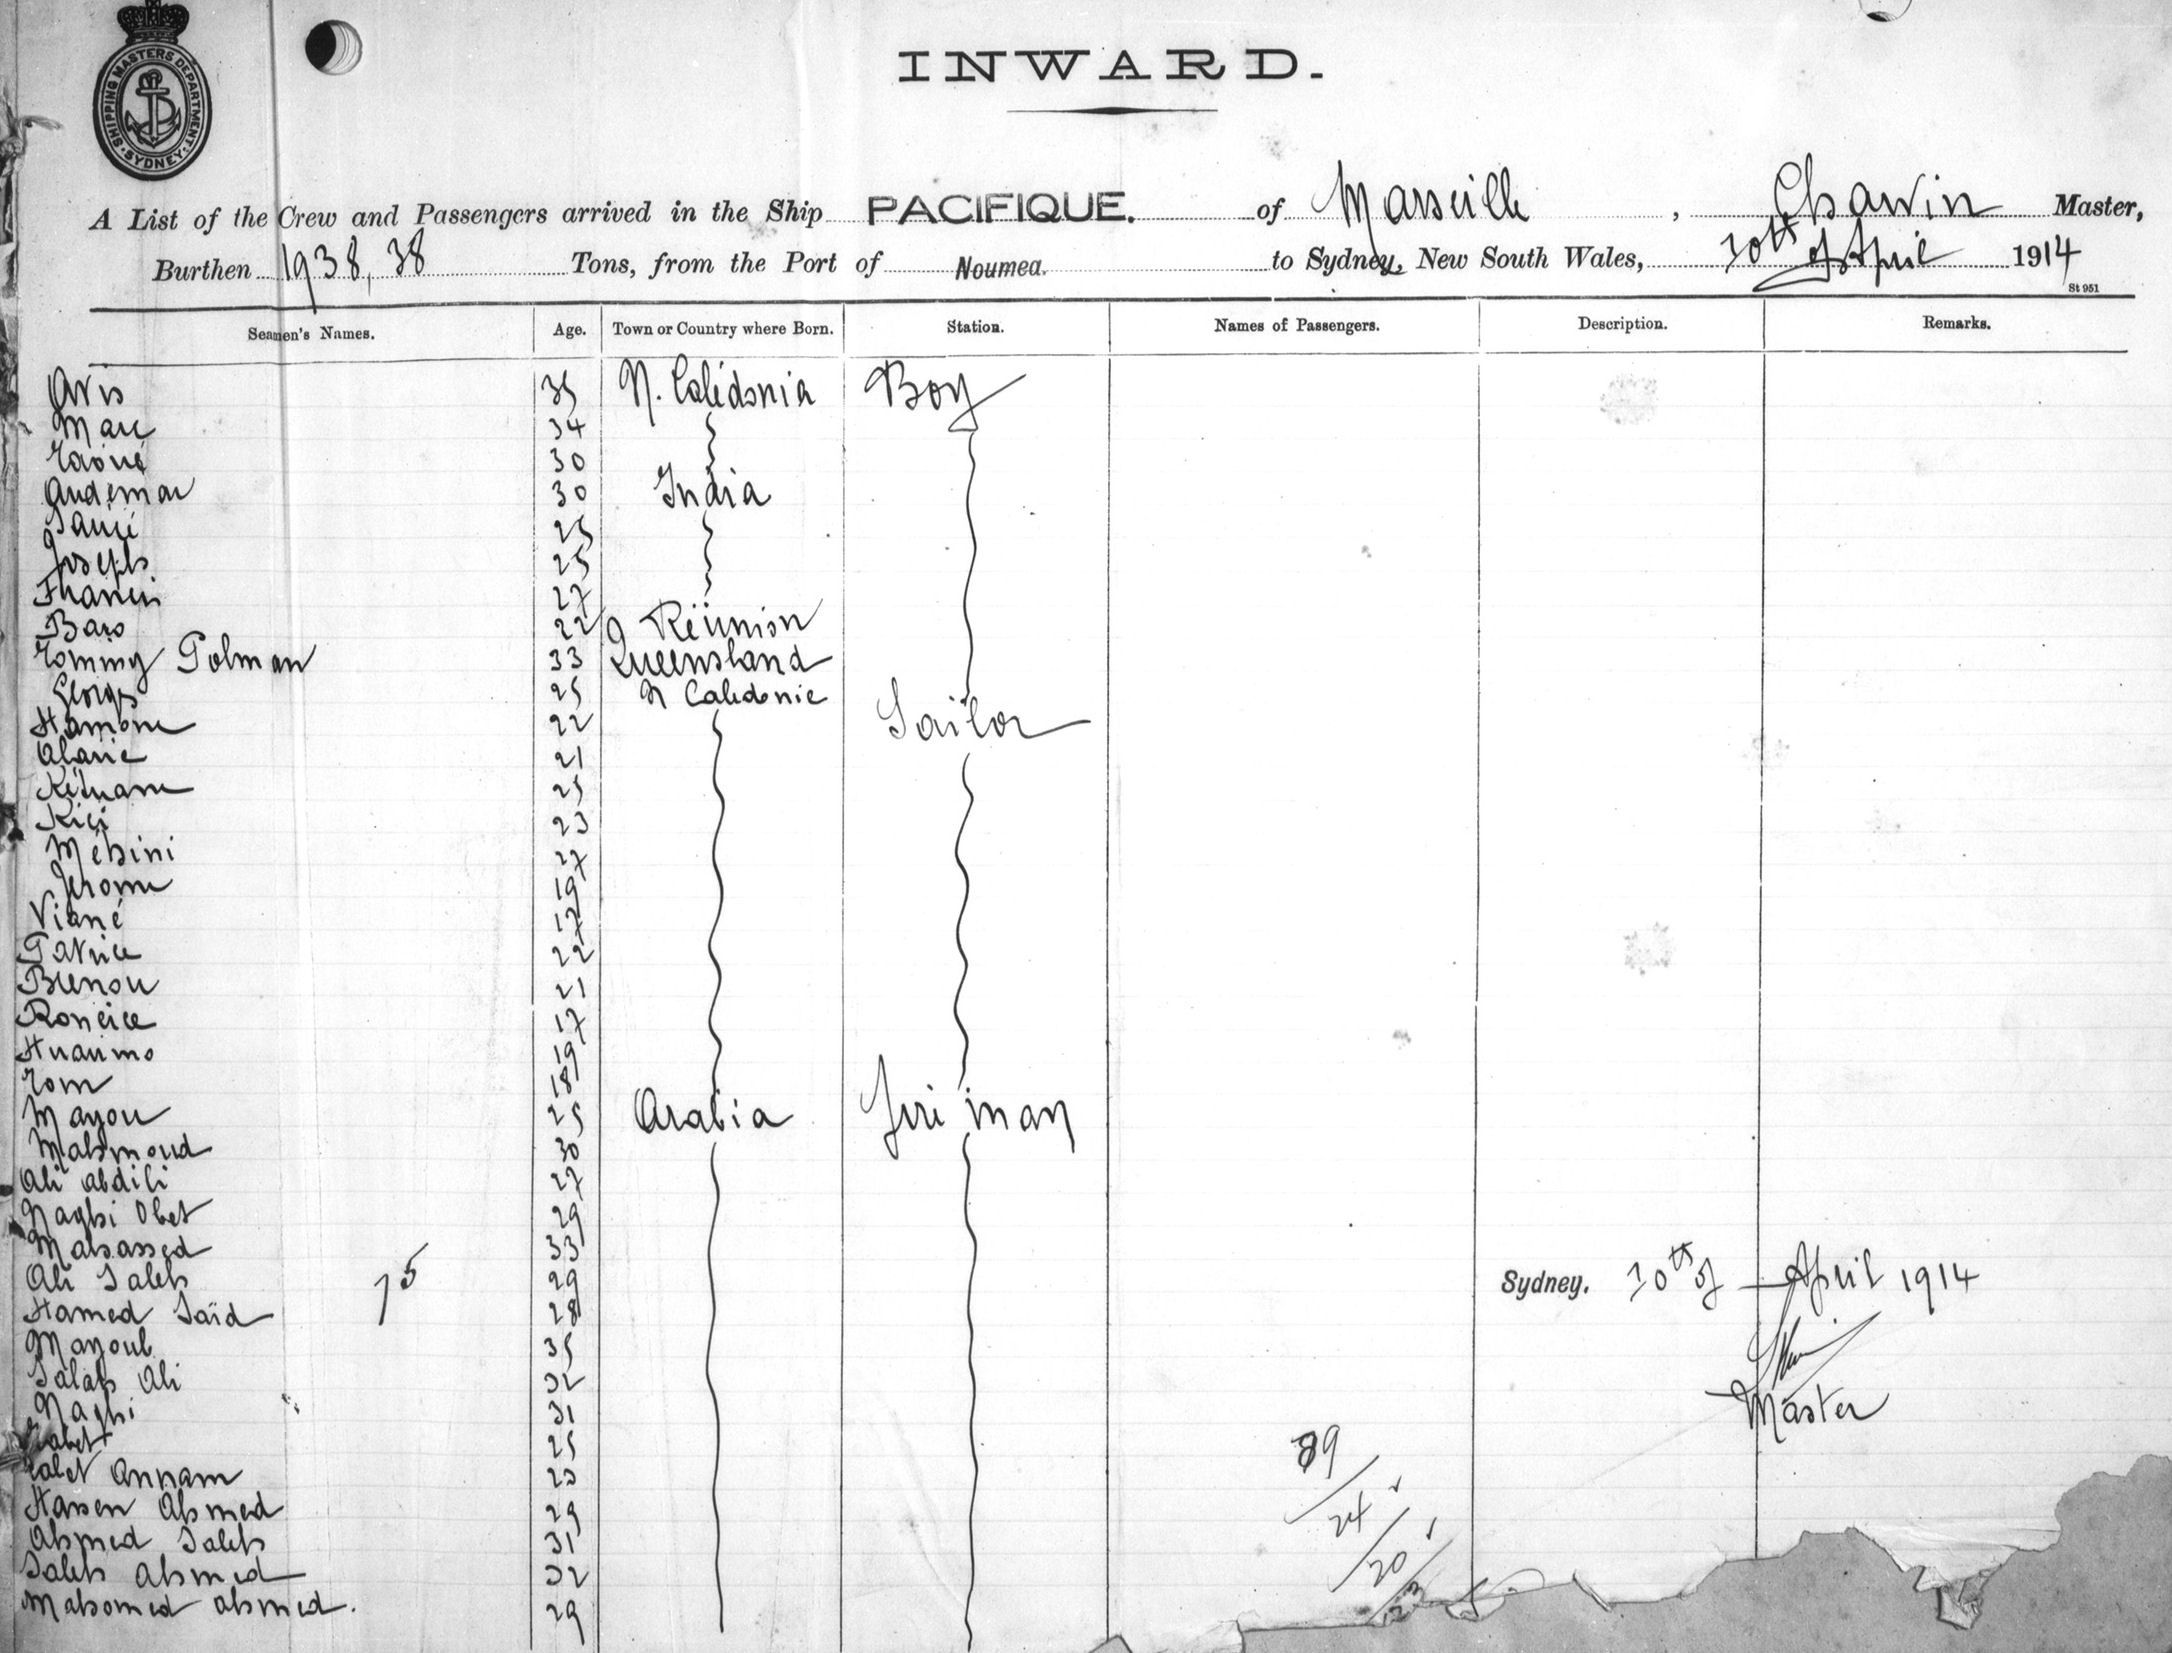 SHIPPING MASTERS DEPARTMENT
SYDNEY
INWARD.
A List of the Crew and Passengers arrived in the Ship PACIFIQUE. of Marseille, Master,
Burthen 1938,38 Tons, from the Port of Noumea. to Sydney, New South Wales, 10th of April 1914
St 951
Seamen's Names. Age. Town or Country where Born. Station. Names of Passengers. Description. Remarks.
35 N. Calédonia Boy
Marc 34
30
Audemar 30 India
25
Joseph 25
Francis 27
22 Réunion
Tommy Polman 33 Queensland
Georges 25 N Caledonie
Hamone 22 Sailor
21
25
Kici 23
Méhini 27
Jerome 19
Viané 17
Patrice 22
21
17
19
Tom 18
Mayou 25 Arabia Fire man
Mahmoud 30
Ali abdili 27
Naghi Obet 29
Mahassed 33
Ali Saleh 29
75
Sydney. 10th of April 1914
Hamed Saïd 28
Mayoub 35
Salah Ali 32
Master
Naghi 31
25
Annam 23
Hassen Ahmed 29
Ahmed Saleh 31
Saleh ahmed 32
Mahomed ahmed. 29
89
24
20
23